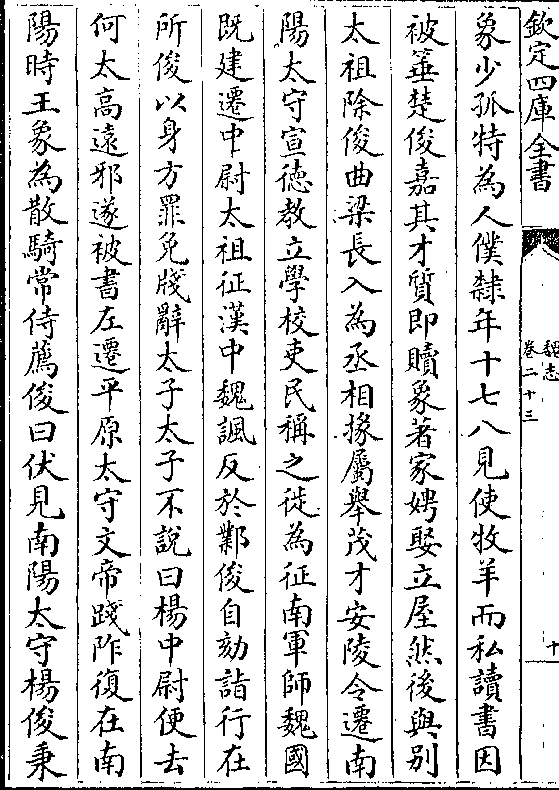 欽定四庫全書
魏志
卷二十三
十
象少孤特為人僕隸年十七八見使牧羊而私讀書因
被箠楚俊嘉其才質即贖象著家娉娶立屋然後與別
太祖除俊曲梁長入為丞相掾屬舉茂才安陵令遷南
陽太守宣徳教立學校吏民稱之徙為征南軍師魏國
既建遷中尉太祖征漢中魏諷反於鄴俊自劾詣行在
所俊以身方罪免牋辭太子太子不說曰楊中尉便去
何太高遠邪遂被書左遷平原太守文帝踐阼復在南
陽時王象為散騎常侍薦俊曰伏見南陽太守楊俊秉